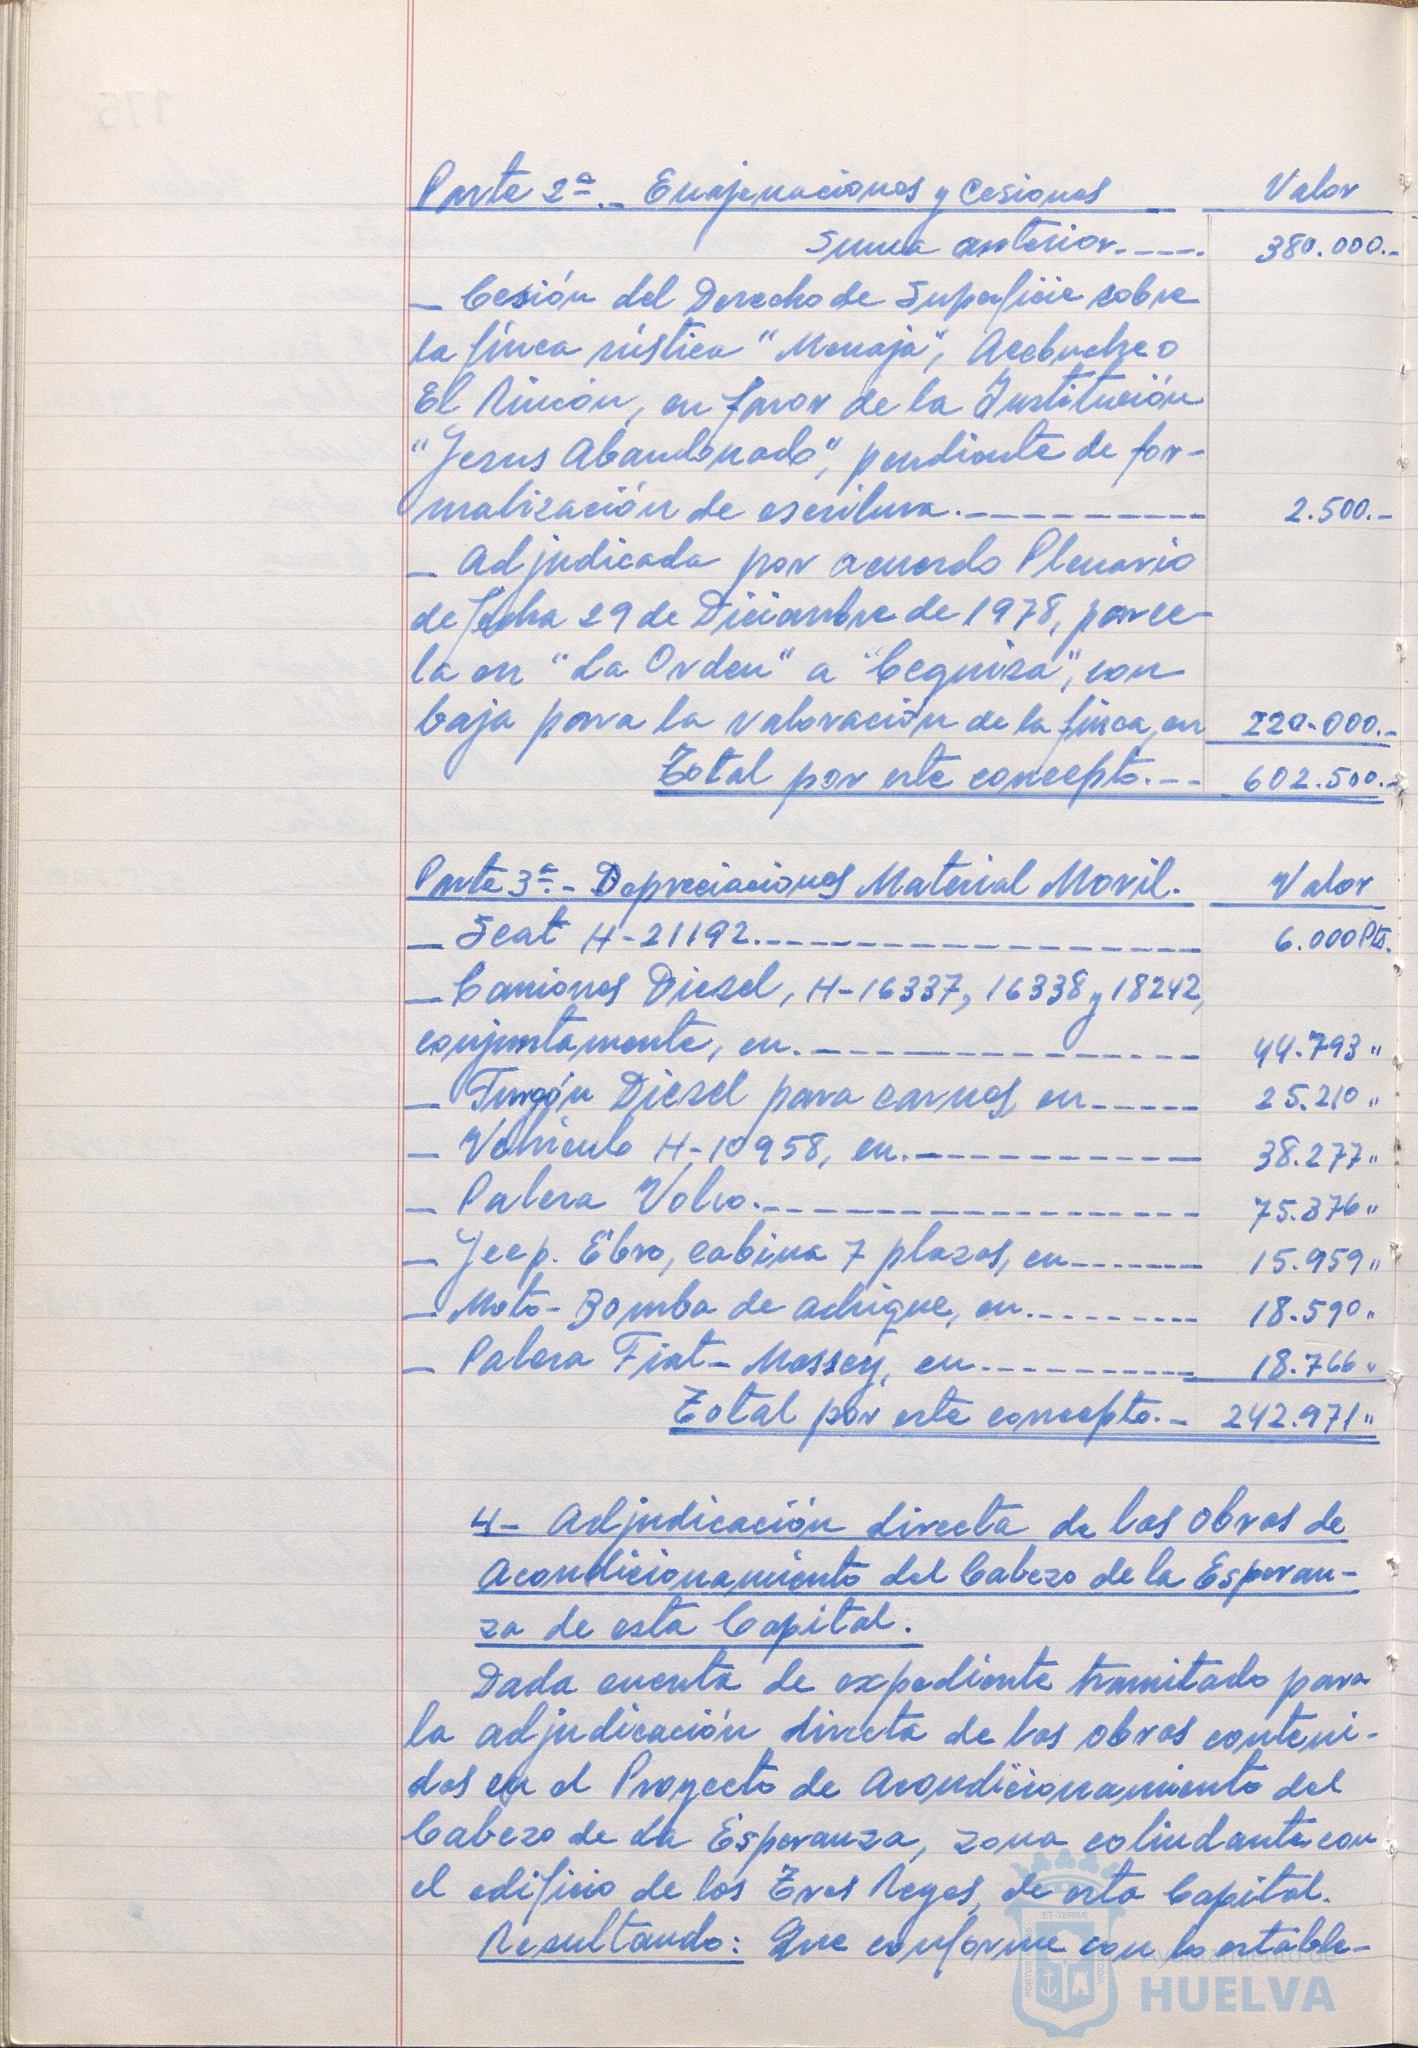 Parte 2ª.- Enajenaciones y Cesiones Valor
Suma anterior.---- 380.000.-
- Cesión del Derecho de Superficie sobre
la finca rústica "Monaja", Acebuche o
El Rincón, en favor de la Institución
"Jesus Abandonado", pendiente de for-
malización de escritura.---------- 2.500.-
- Adjudicada por acuerdo Plenario
de fecha 29 de Diciembre de 1978, parce-
la en "La Orden" a "Ceguisa", con
baja para la valoración de la finca, en 220.000.-
Total por este concepto.-- 602.500.-
Parte 3ª.- Depreciaciones Material Movil. Valor
- Seat H-21192.---------------- 6.000 Pts.
- Camiones Diesel, H-16337, 16338 y 18242,
conjuntamente, en.-------------- 44.793 "
- Furgón Diesel para carnes, en----- 25.210 "
- Vehiculo H-10958, en.----------- 38.277 "
- Palera Volvo.---------------- 75.376 "
- Jeep. Ebro, cabina 7 plazas, en------ 15.959 "
- Moto-Bomba de achique, en.-------- 18.590 "
- Palera Fiat-Massey, en---------- 18.766 "
Total por este concepto.- 242.971 "
4- Adjudicación directa de las Obras de
Acondicionamiento del Cabezo de la Esperan-
za de esta Capital.
Dada cuenta de expediente tramitado para
la adjudicación directa de las obras conteni-
das en el Proyecto de Acondicionamiento del
Cabezo de La Esperanza, zona colindante con
el edificio de los Tres Reyes, de esta Capital.
Resultando: Que conforme con lo estable-
Ayuntamiento de
HUELVA